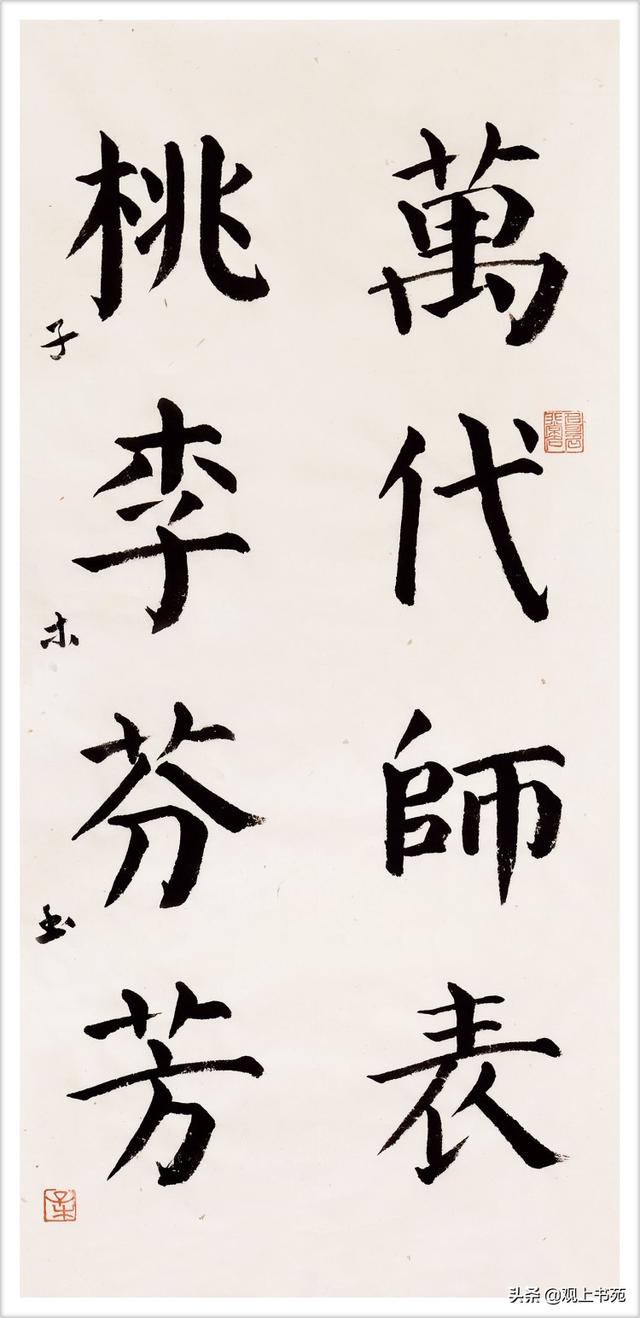 萬代師表
桃李芬芳
子木書
头条 @观上书苑